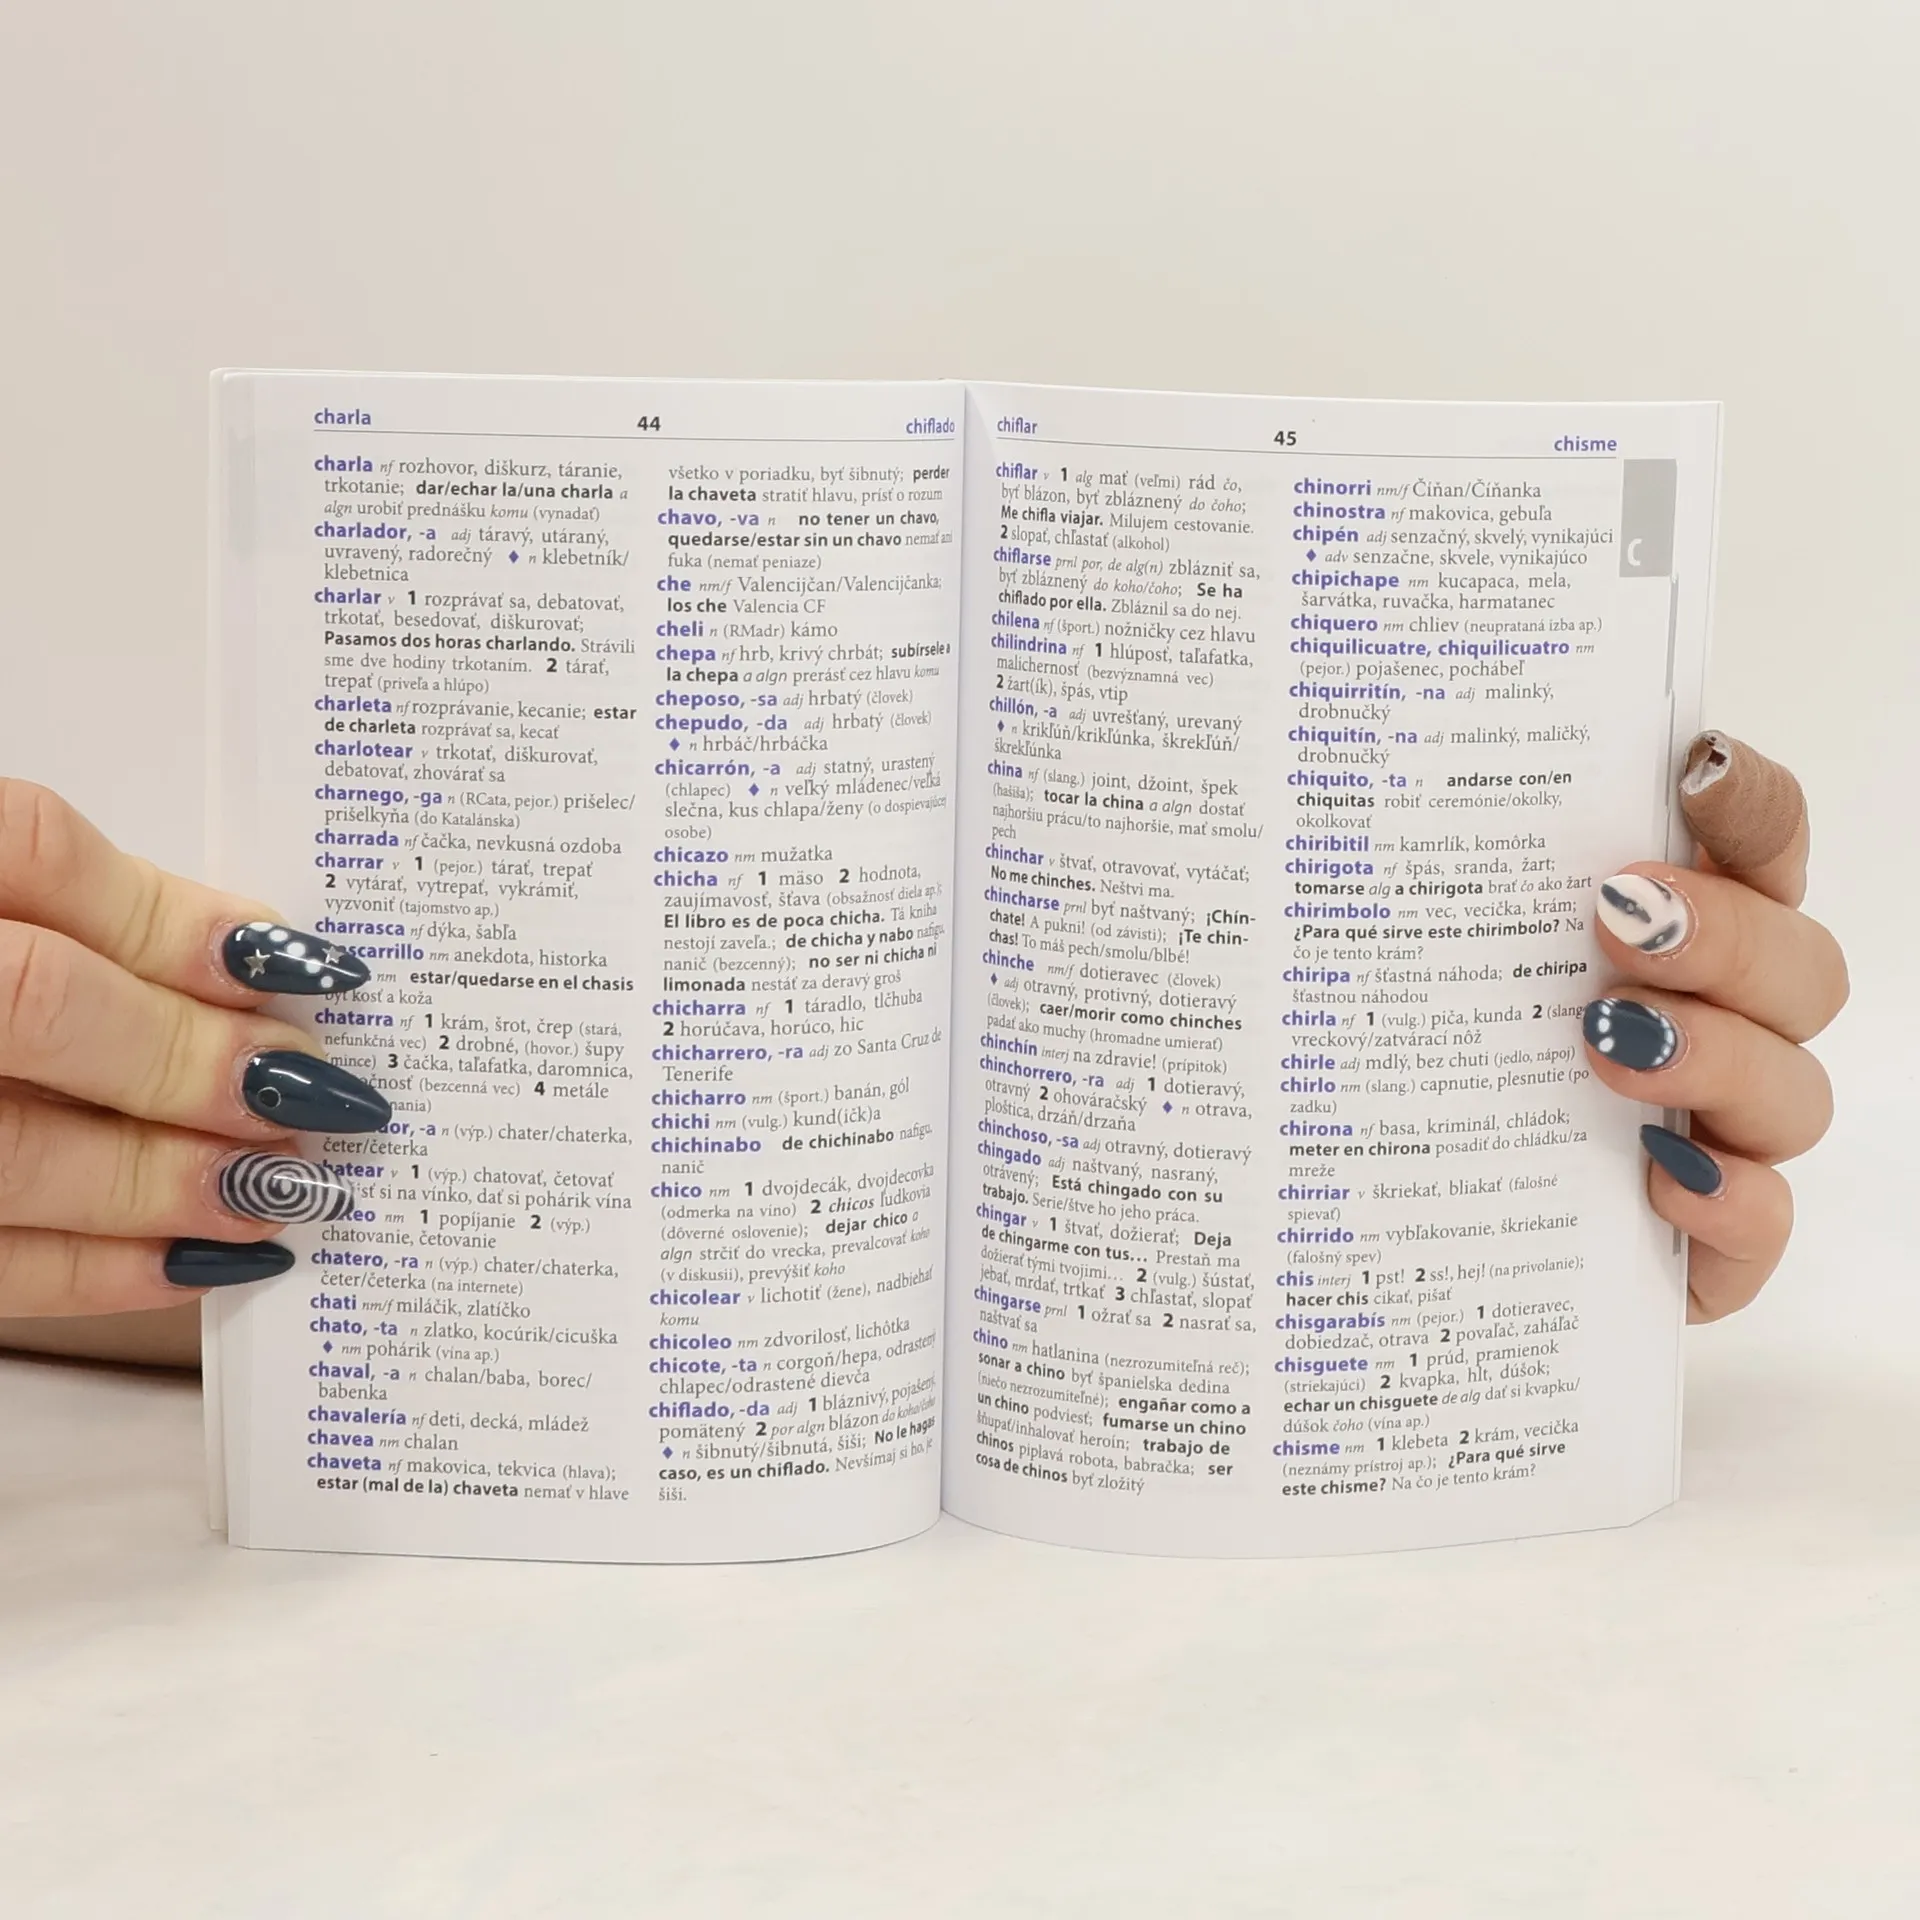 charla
44
chiflado
charla nf rozhovor, diškurz, táranie,
trkotanie; dar/echar la/una charla a
algn urobiť prednášku komu (vynadať)
charlador, -a adj táravý, utáraný,
uvravený, radorečný ♦ n klebetník/
klebetnica
charlar v 1 rozprávať sa, debatovať,
trkotať, besedovať, diškurovať;
Pasamos dos horas charlando. Strávili
sme dve hodiny trkotaním. 2 tárať,
trepať (priveľa a hlúpo)
charleta nf rozprávanie, kecanie; estar
de charleta rozprávať sa, kecať
charlotear v trkotať, diškurovať,
debatovať, zhovárať sa
charnego, -ga n (RCata, pejor.) prišelec/
prišelkyňa (do Katalánska)
charrada nf čačka, nevkusná ozdoba
charrar v 1 (pejor.) tárať, trepať
2 vytárať, vytrepať, vykrámiť,
vyzvoniť (tajomstvo ap.)
charrasca nf dýka, šabľa
scarrillo nm anekdota, historka
nm estar/quedarse en el chasis
byť kosť a koža
chatarra nf 1 krám, šrot, črep (stará,
nefunkčná vec) 2 drobné, (hovor.) šupy
(mince) 3 čačka, taľafatka, daromnica,
čnosť (bezcenná vec) 4 metále
dor, -a n (výp.) chater/chaterka,
četer/četerka
hatear v 1 (výp.) chatovať, četovať
sť si na vínko, dať si pohárik vína
teo nm 1 popíjanie 2 (výp.)
chatovanie, četovanie
chatero, -ra n (výp.) chater/chaterka,
četer/četerka (na internete)
chati nm/f miláčik, zlatíčko
chato, -ta n zlatko, kocúrik/cicuška
♦ nm pohárik (vína ap.)
chaval, -a n chalan/baba, borec/
babenka
chavalería nf deti, decká, mládež
chavea nm chalan
chaveta nf makovica, tekvica (hlava);
estar (mal de la) chaveta nemať v hlave
všetko v poriadku, byť šibnutý; perder
la chaveta stratiť hlavu, prísť o rozum
chavo, -va n no tener un chavo,
quedarse/estar sin un chavo nemať ani
fuka (nemať peniaze)
che nm/f Valencijčan/Valencijčanka;
los che Valencia CF
cheli n (RMadr) kámo
chepa nf hrb, krivý chrbát; subírsele a
la chepa a algn prerásť cez hlavu komu
cheposo, -sa adj hrbatý (človek)
chepudo, -da adj hrbatý (človek)
♦ n hrbáč/hrbáčka
chicarrón, -a adj statný, urastený
(chlapec) ♦ n veľký mládenec/veľká
slečna, kus chlapa/ženy (o dospievajúcej
osobe)
chicazo nm mužatka
chicha nf 1 mäso 2 hodnota,
zaujímavosť, šťava (obsažnosť diela ap.);
El libro es de poca chicha. Tá kniha
nestojí zaveľa.; de chicha y nabo nafigu,
nanič (bezcenný); no ser ni chicha ni
limonada nestáť za deravý groš
chicharra nf 1 táradlo, tlčhuba
2 horúčava, horúco, hic
chicharrero, -ra adj zo Santa Cruz de
Tenerife
chicharro nm (šport.) banán, gól
chichi nm (vulg.) kund(íčk)a
chichinabo de chichinabo nafigu,
nanič
chico nm 1 dvojdecák, dvojdecovka
(odmerka na víno) 2 chicos ľudkovia
(dôverné oslovenie); dejar chico a
algn strčiť do vrecka, prevalcovať koho
(v diskusii), prevýšiť koho
chicolear v lichotiť (žene), nadbiehať
komu
chicoleo nm zdvorilosť, lichôtka
chicote, -ta n corgoň/hepa, odrastený
chlapec/odrastené dievča
chiflado, -da adj 1 bláznivý, pojašený,
pomätený 2 por algn blázon do koho/čoho
♦ n šibnutý/šibnutá, šiši; No le hagas
caso, es un chiflado. Nevšímaj si ho, je
šiši.
chiflar
45
chisme
chiflar v 1 alg mať (veľmi) rád čo,
byť blázon, byť zbláznený do čoho;
Me chifla viajar. Milujem cestovanie.
2 slopať, chľastať (alkohol)
chiflarse prnl por, de alg(n) zblázniť sa,
byť zbláznený do koho/čoho; Se ha
chiflado por ella. Zbláznil sa do nej.
chilena nf (šport.) nožničky cez hlavu
chilindrina nf 1 hlúposť, taľafatka,
malichernosť (bezvýznamná vec)
2 žart(ík), špás, vtip
chillón, -a adj uvrešťaný, urevaný
♦ n krikľúň/krikľúnka, škrekľúň/
škrekľúnka
china nf (slang.) joint, džoint, špek
(hašiša); tocar la china a algn dostať
najhoršiu prácu/to najhoršie, mať smolu/
pech
chinchar v štvať, otravovať, vytáčať;
No me chinches. Neštvi ma.
chincharse prnl byť naštvaný; ¡Chín-
chate! A pukni! (od závisti); ¡Te chin-
chas! To máš pech/smolu/blbé!
chinche nm/f dotieravec (človek)
♦ adj otravný, protivný, dotieravý
(človek); caer/morir como chinches
padať ako muchy (hromadne umierať)
chinchín interj na zdravie! (prípitok)
chinchorrero, -ra adj 1 dotieravý,
otravný 2 ohováračský ♦ n otrava,
ploštica, drzáň/drzaňa
chinchoso, -sa adj otravný, dotieravý
chingado adj naštvaný, nasraný,
otrávený; Está chingado con su
trabajo. Serie/štve ho jeho práca.
chingar v 1 štvať, dožierať; Deja
de chingarme con tus... Prestaň ma
dožierať tými tvojimi... 2 (vulg.) šústať,
jebať, mrdať, trtkať 3 chľastať, slopať
chingarse prnl 1 ožrať sa 2 nasrať sa,
naštvať sa
chino nm hatlanina (nezrozumiteľná reč);
sonar a chino byť španielska dedina
(niečo nezrozumiteľné); engañar como a
un chino podviesť; fumarse un chino
šňupať/inhalovať heroín; trabajo de
chinos piplavá robota, babračka; ser
cosa de chinos byť zložitý
chinorri nm/f Číňan/Číňanka
chinostra nf makovica, gebuľa
chipén adj senzačný, skvelý, vynikajúci
♦ adv senzačne, skvele, vynikajúco
chipichape nm kucapaca, mela,
šarvátka, ruvačka, harmatanec
chiquero nm chliev (neuprataná izba ap.)
chiquilicuatre, chiquilicuatro nm
(pejor.) pojašenec, pochábeľ
chiquirritín, -na adj malinký,
drobnučký
chiquitín, -na adj malinký, maličký,
drobnučký
chiquito, -ta n andarse con/en
chiquitas robiť ceremónie/okolky,
okolkovať
chiribitil nm kamrlík, komôrka
chirigota nf špás, sranda, žart;
tomarse alg a chirigota brať čo ako žart
chirimbolo nm vec, vecička, krám;
¿Para qué sirve este chirimbolo? Na
čo je tento krám?
chiripa nf šťastná náhoda; de chiripa
šťastnou náhodou
chirla nf 1 (vulg.) piča, kunda 2 (slang
vreckový/zatvárací nôž
chirle adj mdlý, bez chuti (jedlo, nápoj)
chirlo nm (slang.) capnutie, plesnutie (po
zadku)
chirona nf basa, kriminál, chládok;
meter en chirona posadiť do chládku/za
mreže
chirriar v škriekať, bliakať (falošné
spievať)
chirrido nm vybľakovanie, škriekanie
(falošný spev)
chis interj 1 pst! 2 ss!, hej! (na privolanie);
hacer chis cikať, pišať
chisgarabís nm (pejor.) 1 dotieravec,
dobiedzač, otrava 2 povaľač, zaháľač
chisguete nm 1 prúd, pramienok
(striekajúci) 2 kvapka, hlt, dúšok;
echar un chisguete de alg dať si kvapku/
dúšok čoho (vína ap.)
chisme nm 1 klebeta 2 krám, vecička
(neznámy prístroj ap.); ¿Para qué sirve
este chisme? Na čo je tento krám?
C